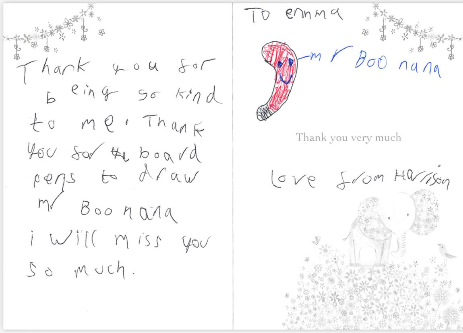 Thank you for
being so kind
to me. Thank
you for the board
pens to draw
mr Boonana
i will miss you
so much.
To emma
mr Boonana
Thank you very much
Love from Harrison